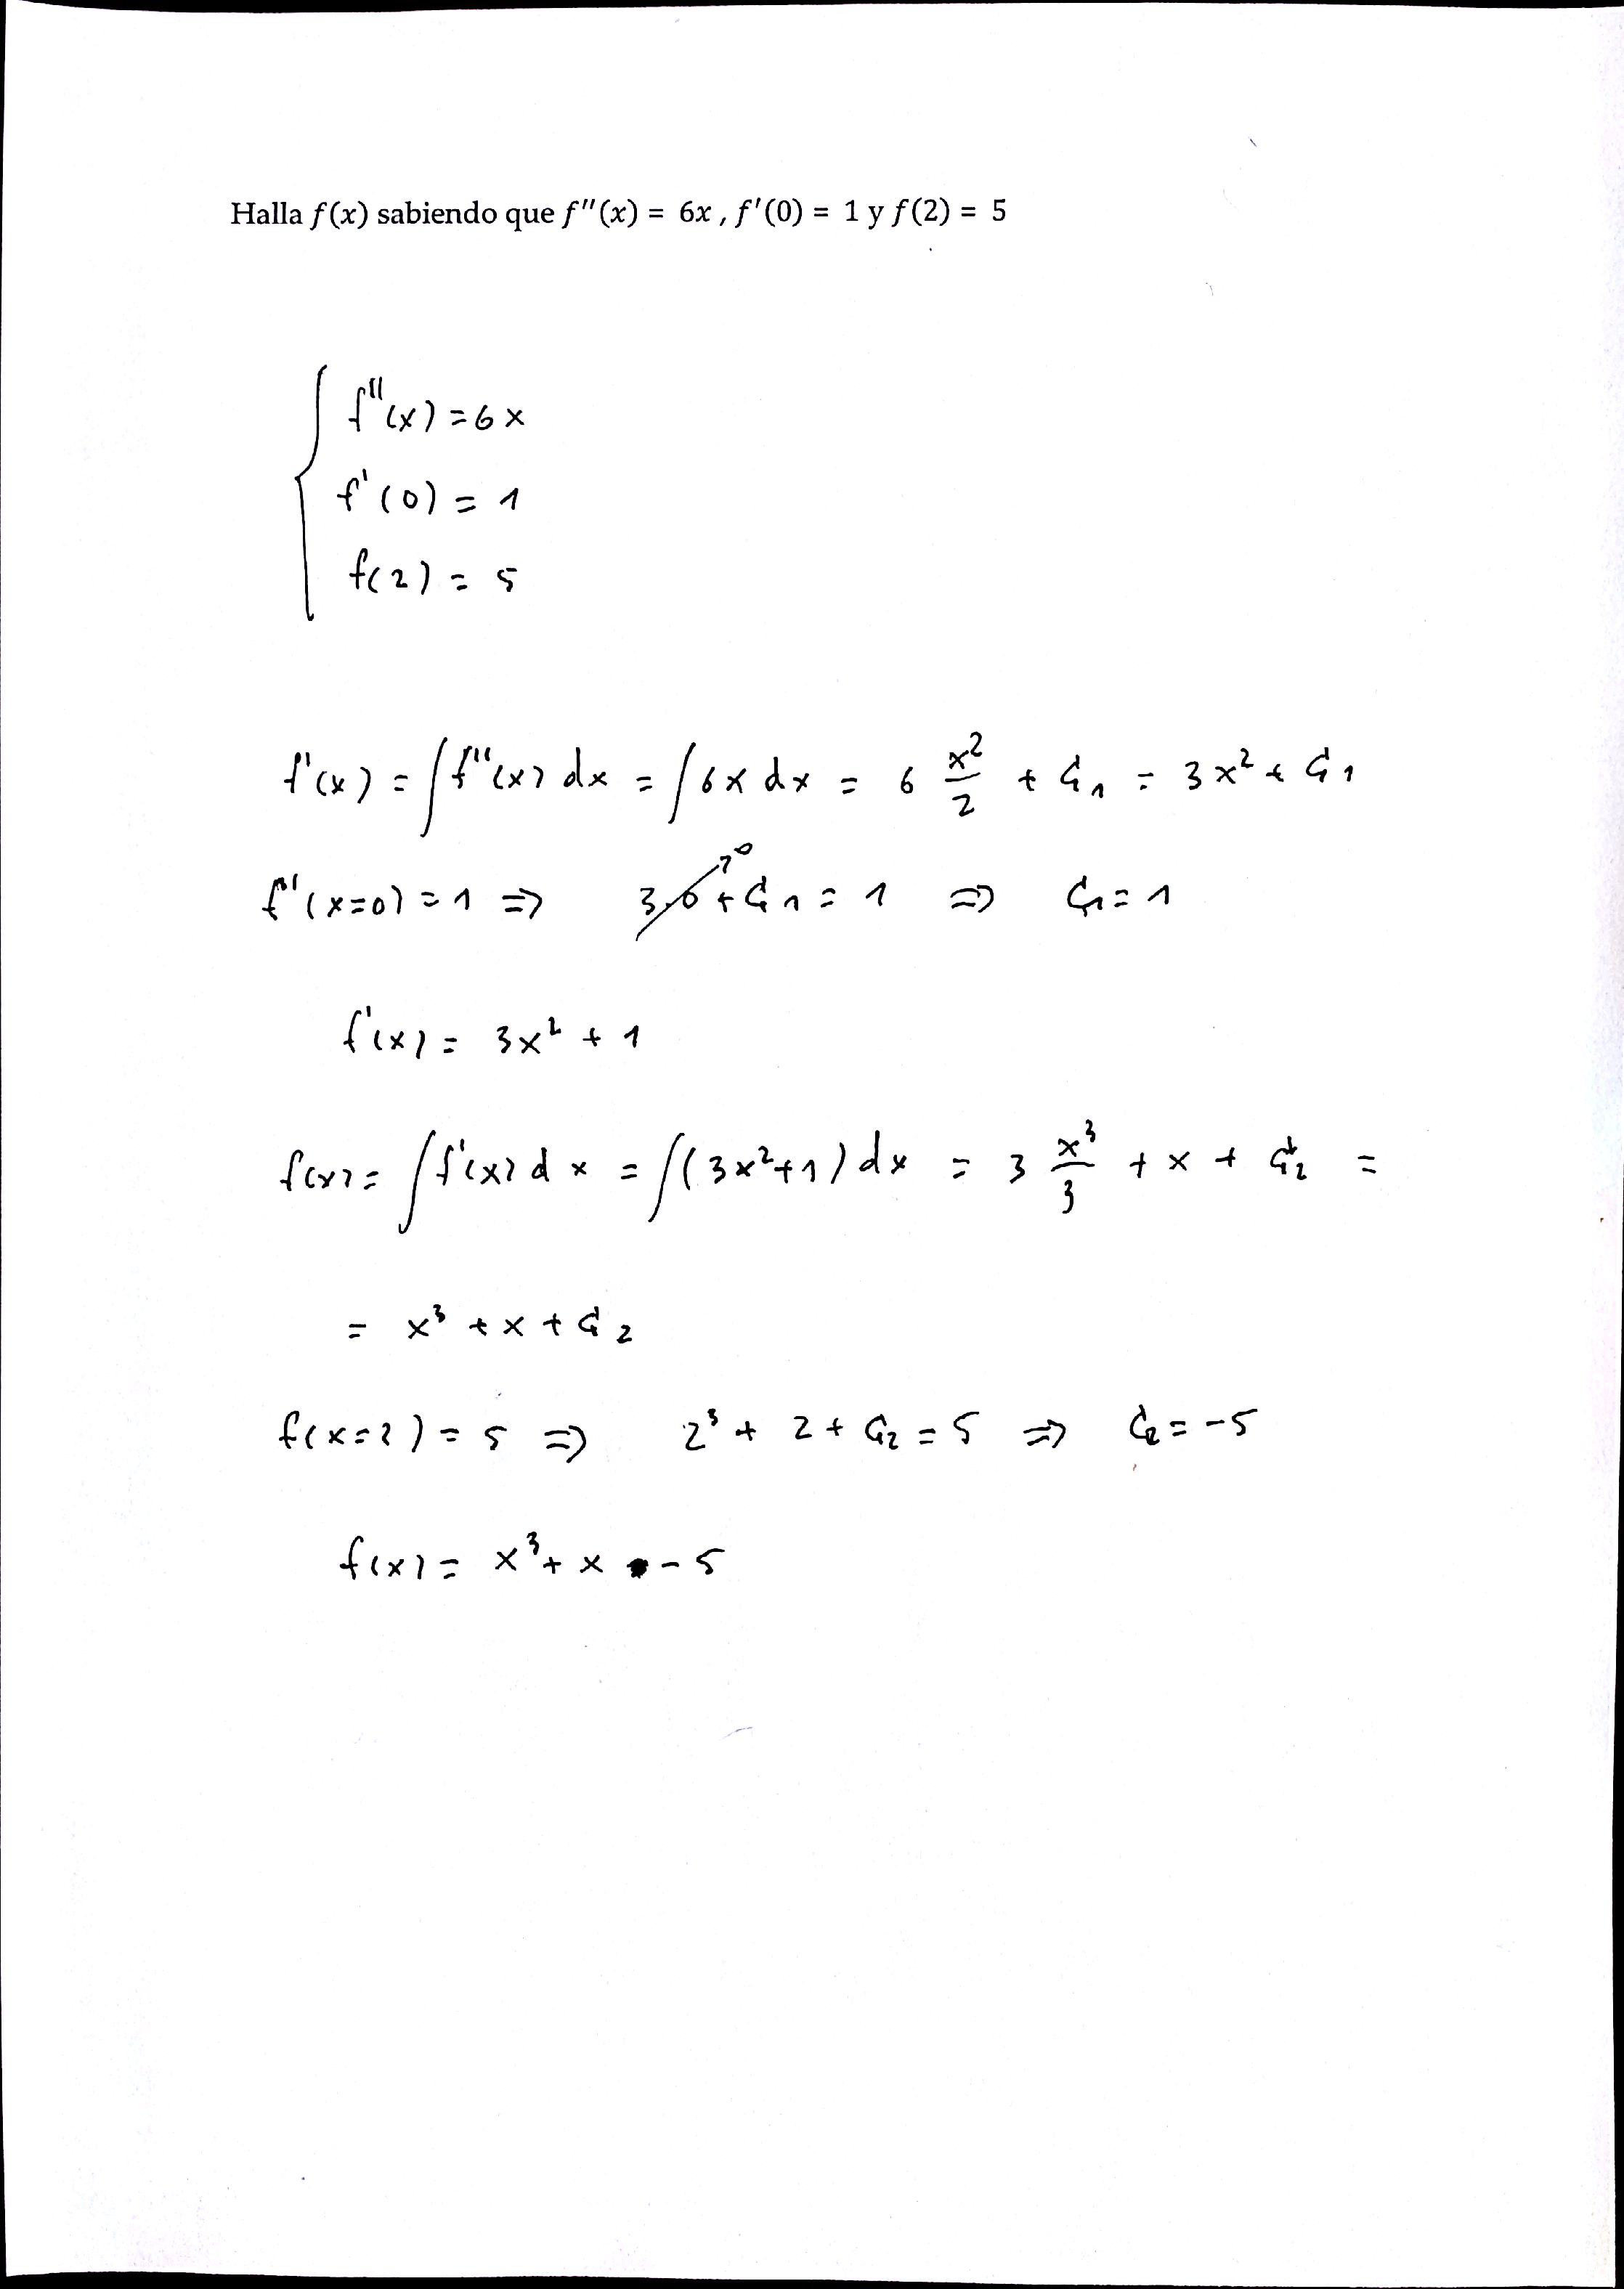 Halla f(x) sabiendo que f''(x) = 6x , f'(0) = 1 y f(2) = 5
f''(x) = 6x
f'(0) = 1
f(2) = 5
f'(x) = ∫ f''(x) dx = ∫ 6x dx = 6 x²/2 + C₁ = 3x² + C₁
f'(x=0) = 1 ⇒ 3·0 + C₁ = 1 ⇒ C₁ = 1
f'(x) = 3x² + 1
f(x) = ∫ f'(x) dx = ∫ (3x²+1) dx = 3 x³/3 + x + C₂ =
= x³ + x + C₂
f(x=2) = 5 ⇒ 2³ + 2 + C₂ = 5 ⇒ C₂ = -5
f(x) = x³ + x - 5